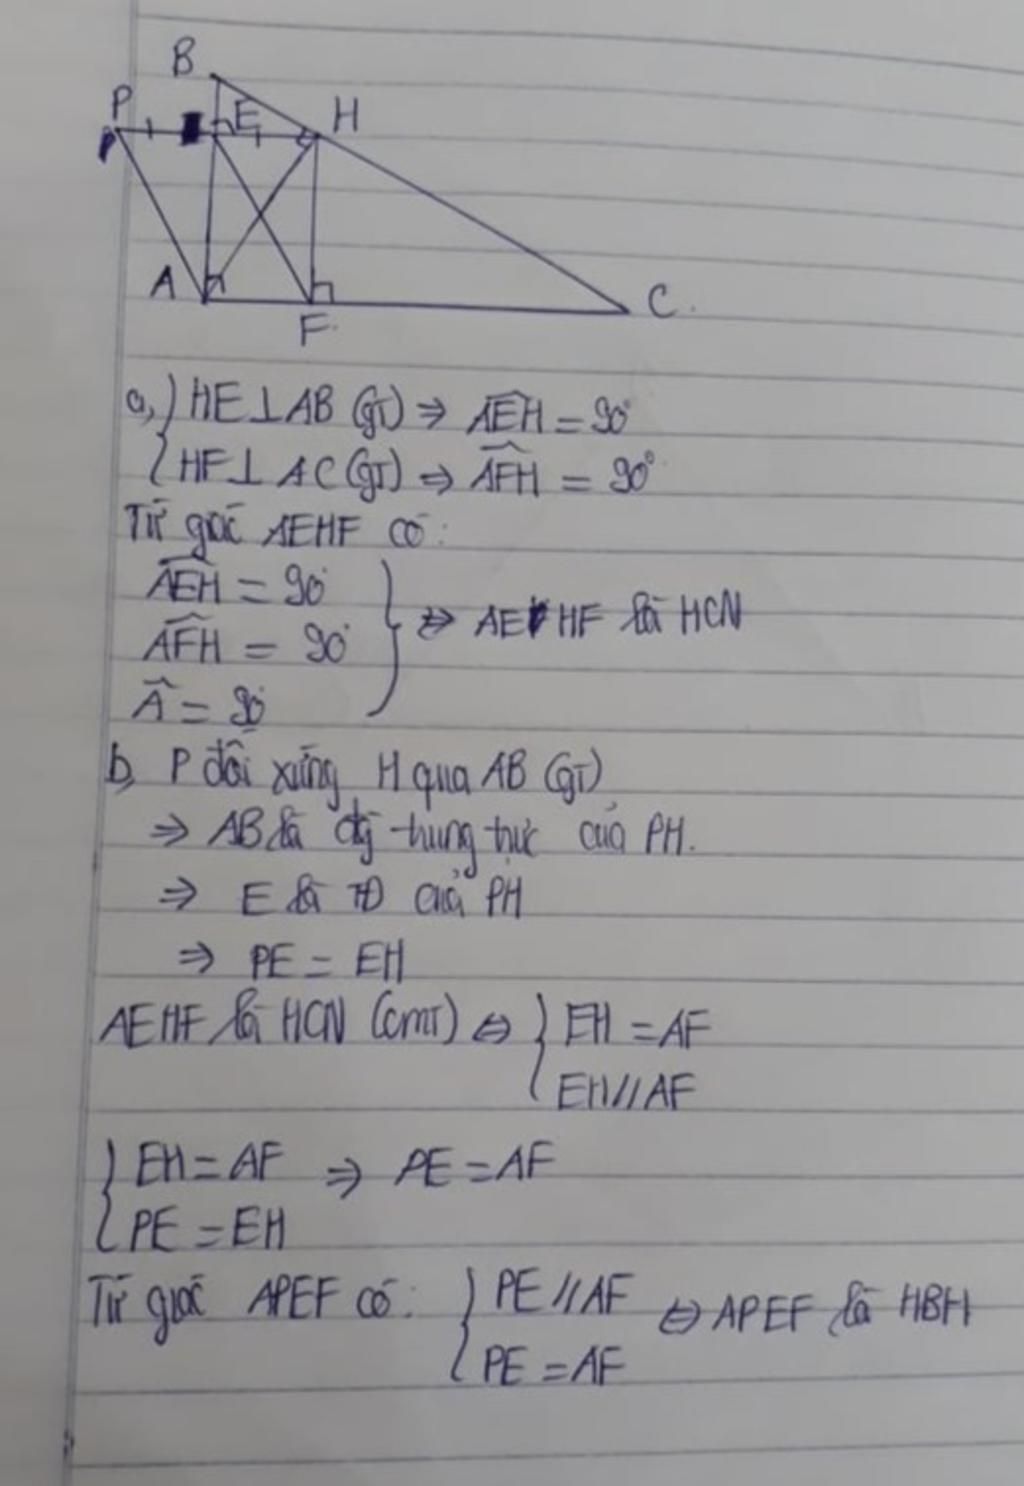 B
P E H
A F C
a, HE ⊥ AB (gt) ⇒ AEH = 90°
HF ⊥ AC (gt) ⇒ AFH = 90°
Tứ giác AEHF có:
AEH = 90°
AFH = 90° ⇒ AEHF là HCN
A = 90°
b, P đối xứng H qua AB (gt)
⇒ AB là đg trung trực của PH.
⇒ E là TĐ của PH
⇒ PE = EH
AEHF là HCN (cmt) ⇔ EH = AF
EH // AF
EH = AF ⇒ PE = AF
PE = EH
Tứ giác APEF có: PE // AF ⇔ APEF là HBH
PE = AF